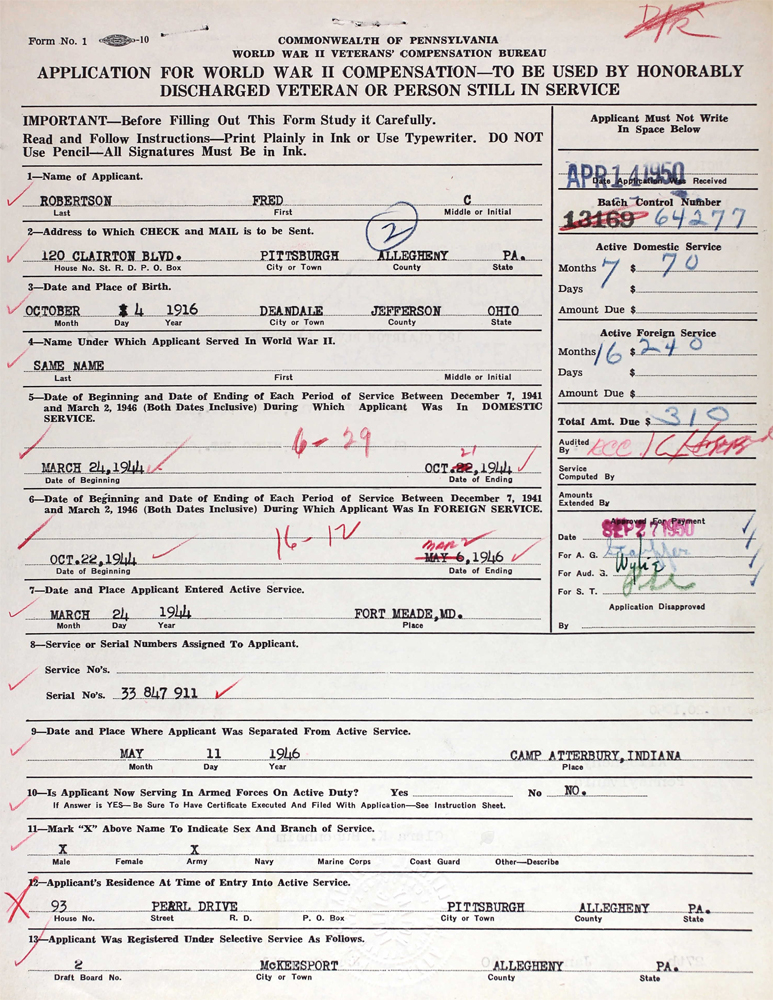 Form No. 1 -10
COMMONWEALTH OF PENNSYLVANIA
WORLD WAR II VETERANS' COMPENSATION BUREAU
APPLICATION FOR WORLD WAR II COMPENSATION—TO BE USED BY HONORABLY
DISCHARGED VETERAN OR PERSON STILL IN SERVICE
IMPORTANT—Before Filling Out This Form Study it Carefully.
Read and Follow Instructions—Print Plainly in Ink or Use Typewriter. DO NOT
Use Pencil—All Signatures Must Be in Ink.
1—Name of Applicant.
ROBERTSON FRED C
Last First Middle or Initial
2—Address to Which CHECK and MAIL is to be Sent.
2
120 CLAIRTON BLVD. PITTSBURGH ALLEGHENY PA.
House No. St. R. D. P. O. Box City or Town County State
3—Date and Place of Birth.
OCTOBER 4 1916 DEANDALE JEFFERSON OHIO
Month Day Year City or Town County State
4—Name Under Which Applicant Served In World War II.
SAME NAME
Last First Middle or Initial
5—Date of Beginning and Date of Ending of Each Period of Service Between December 7, 1941
and March 2, 1946 (Both Dates Inclusive) During Which Applicant Was In DOMESTIC
SERVICE.
6-29
21
MARCH 24,1944 OCT.22,1944
Date of Beginning Date of Ending
6—Date of Beginning and Date of Ending of Each Period of Service Between December 7, 1941
and March 2, 1946 (Both Dates Inclusive) During Which Applicant Was In FOREIGN SERVICE.
16-12
MAR 2
OCT.22,1944 MAY 6,1946
Date of Beginning Date of Ending
7—Date and Place Applicant Entered Active Service.
MARCH 24 1944 FORT MEADE,MD.
Month Day Year Place
8—Service or Serial Numbers Assigned To Applicant.
Service No's.
Serial No's. 33 847 911
9—Date and Place Where Applicant Was Separated From Active Service.
MAY 11 1946 CAMP ATTERBURY,INDIANA
Month Day Year Place
10—Is Applicant Now Serving In Armed Forces On Active Duty? Yes No NO.
If Answer is YES—Be Sure To Have Certificate Executed And Filed With Application—See Instruction Sheet.
11—Mark "X" Above Name To Indicate Sex And Branch of Service.
X X
Male Female Army Navy Marine Corps Coast Guard Other—Describe
12—Applicant's Residence At Time of Entry Into Active Service.
93 PEARL DRIVE PITTSBURGH ALLEGHENY PA.
House No. Street R. D. P. O. Box City or Town County State
13—Applicant Was Registered Under Selective Service As Follows.
2 McKEESPORT ALLEGHENY PA.
Draft Board No. City or Town County State
Applicant Must Not Write
In Space Below
APR 14 1950
Date Application Was Received
Batch Control Number
13169 64277
Active Domestic Service
Months 7 $ 70
Days $
Amount Due $
Active Foreign Service
Months 16 $ 240
Days $
Amount Due $
Total Amt. Due $ 310
Audited
By
Service
Computed By
Amounts
Extended By
Approved For Payment
Date SEP 27 1950
For A. G.
For Aud. G. Wylie
For S. T.
Application Disapproved
By